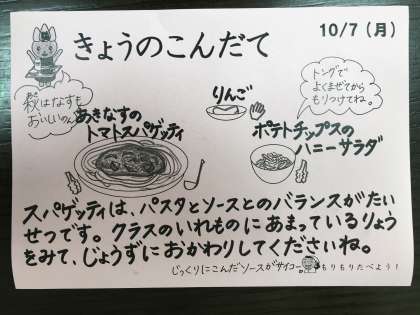 きょうのこんだて
10/7（月）
秋はなすも
おいしいのん
トングで
よくまぜてから
もりつけてね。
りんご
あきなすの
トマトスパゲッティ
ポテトチップスの
ハニーサラダ
スパゲッティは、パスタとソースとのバランスがたい
せつです。クラスのいれものにあまっているりょう
をみて、じょうずにおかわりしてくださいね。
じっくりにこんだソースがサイコー。
もりもりたべよう!